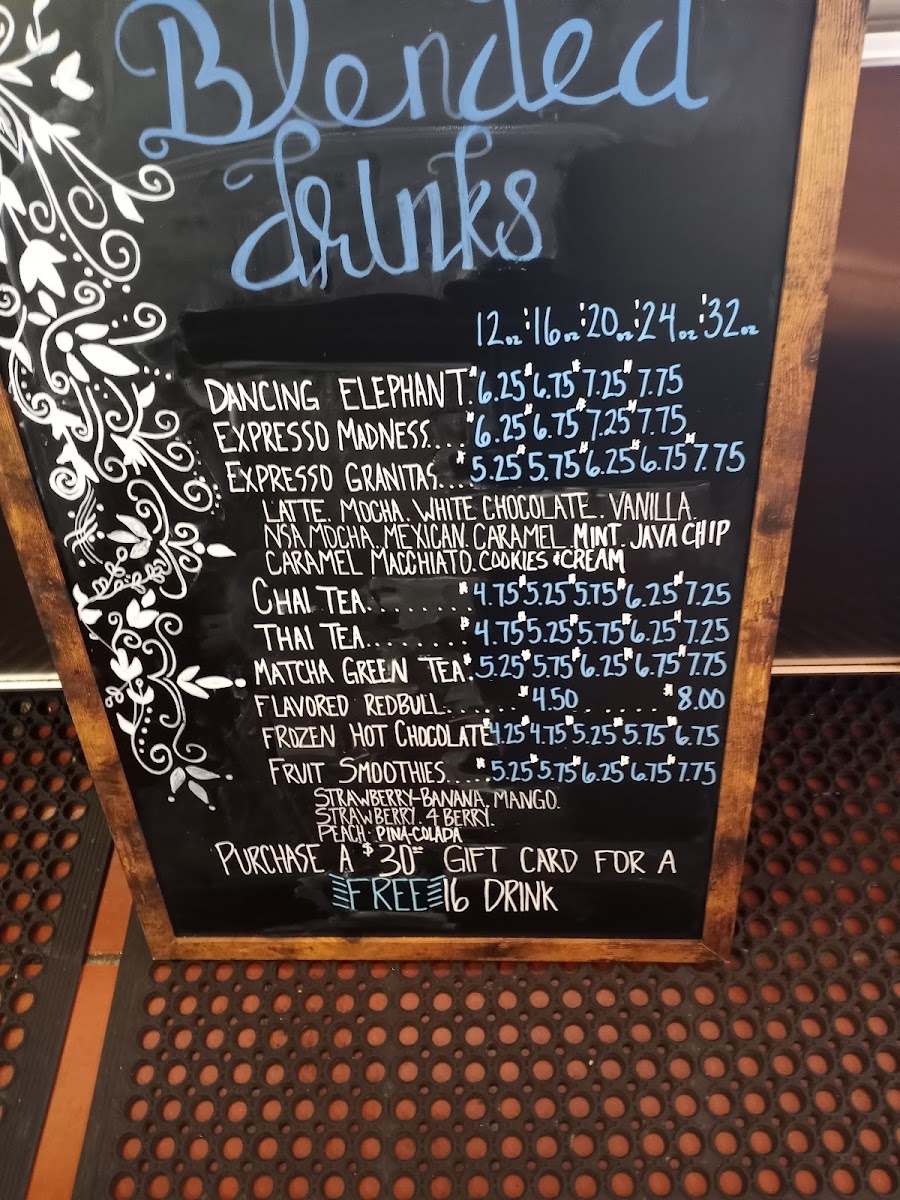 Blended
drinks
12oz:16oz:20oz:24oz:32oz
DANCING ELEPHANT.$6.25$6.75$7.25$7.75
EXPRESSO MADNESS....$6.25$6.75$7.25$7.75
EXPRESSO GRANITAS....$5.25$5.75$6.25$6.75$7.75
LATTE. MOCHA. WHITE CHOCOLATE. VANILLA.
NSA MOCHA. MEXICAN. CARAMEL. MINT. JAVA CHIP
CARAMEL MACCHIATO. COOKIES & CREAM
CHAI TEA........$4.75$5.25$5.75$6.25$7.25
THAI TEA........$4.75$5.25$5.75$6.25$7.25
MATCHA GREEN TEA.$5.25$5.75$6.25$6.75$7.75
FLAVORED REDBULL.......$4.50......$8.00
FROZEN HOT CHOCOLATE$4.25$4.75$5.25$5.75$6.75
FRUIT SMOOTHIES.....$5.25$5.75$6.25$6.75$7.75
STRAWBERRY-BANANA. MANGO.
STRAWBERRY. 4 BERRY.
PEACH. PINA-COLADA
PURCHASE A $30.00 GIFT CARD FOR A
FREE 16 DRINK